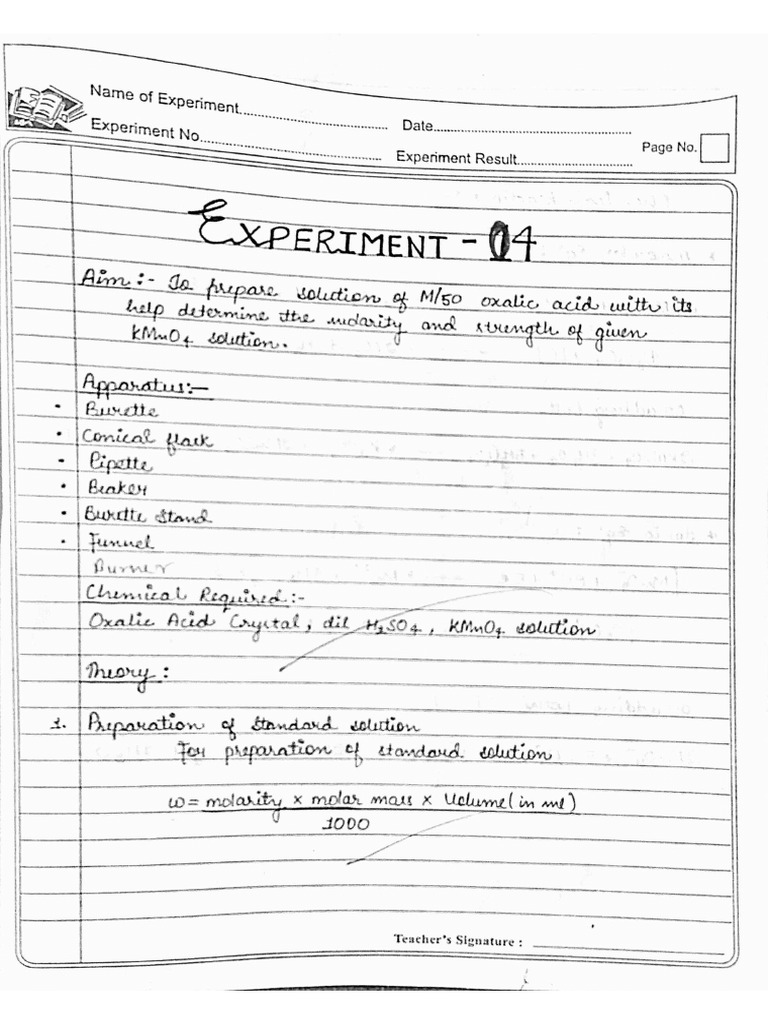 Name of Experiment
Date
Experiment No.
Experiment Result
Page No.
EXPERIMENT - 04
Aim :- To prepare solution of M/50 oxalic acid with its
help determine the molarity and strength of given
KMnO4 solution.
Apparatus:-
• Burette
• Conical flask
- Pipette
• Beaker
• Burette Stand
• Funnel
Burner
Chemical Required:-
Oxalic Acid Crystal, dil H2SO4, KMnO4 solution
Theory :
1. Preparation of standard solution
For preparation of standard solution
w = molarity x molar mass x Volume (in ml)
1000
Teacher's Signature :